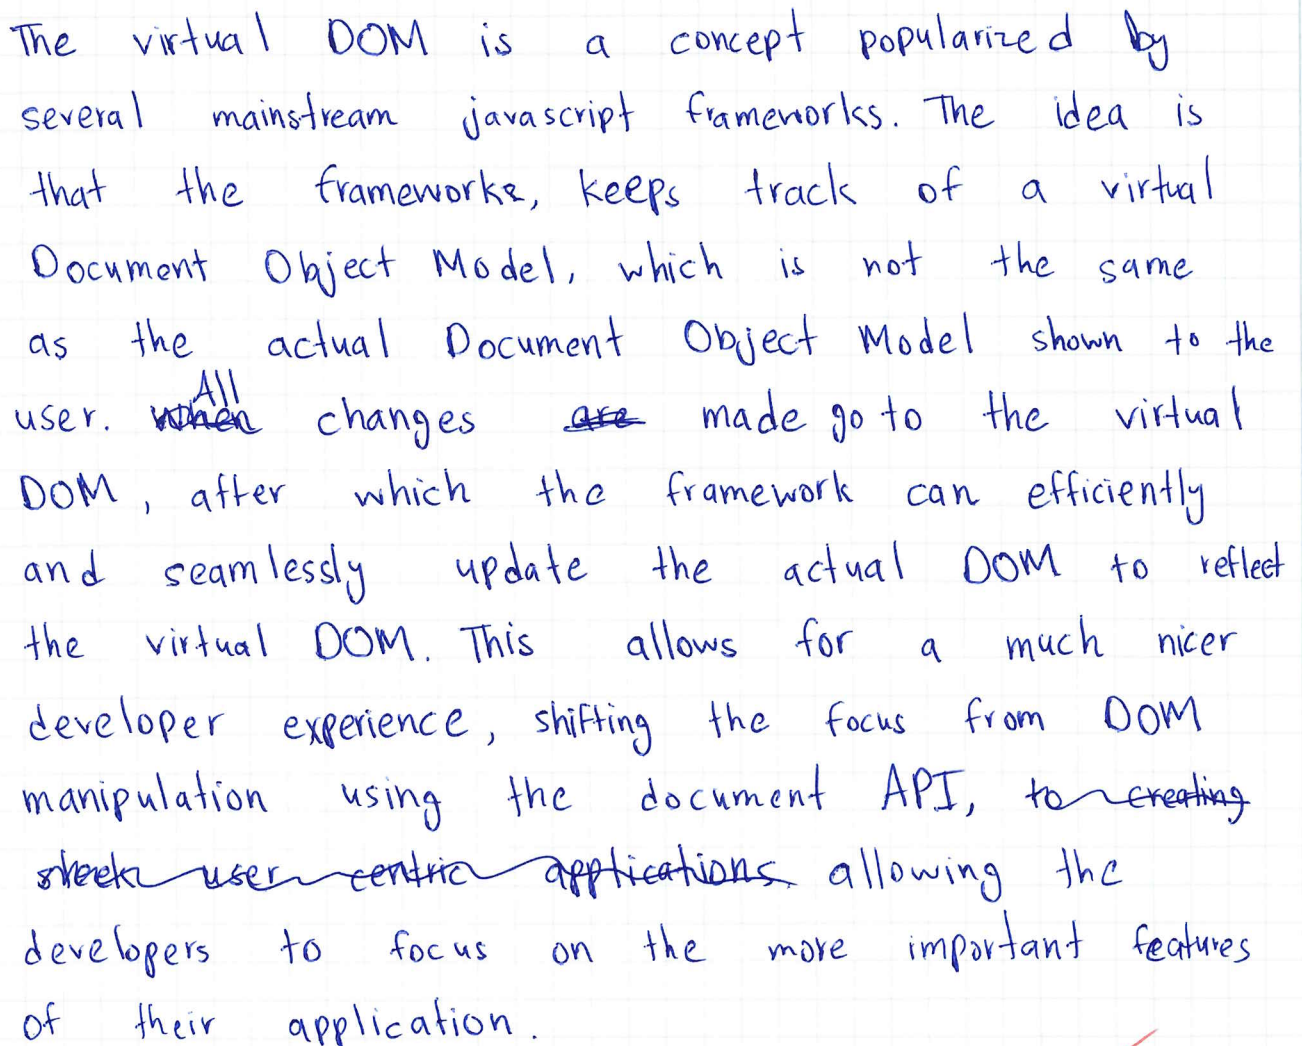 The virtual DOM is a concept popularized by
several mainstream javascript frameworks. The idea is
that the frameworks, keeps track of a virtual
Document Object Model, which is not the same
as the actual Document Object Model shown to the
user. when All changes are made go to the virtual
DOM, after which the framework can efficiently
and seamlessly update the actual DOM to reflect
the virtual DOM. This allows for a much nicer
developer experience, shifting the focus from DOM
manipulation using the document API, to creating
sleek user centric applications. allowing the
developers to focus on the more important features
of their application.